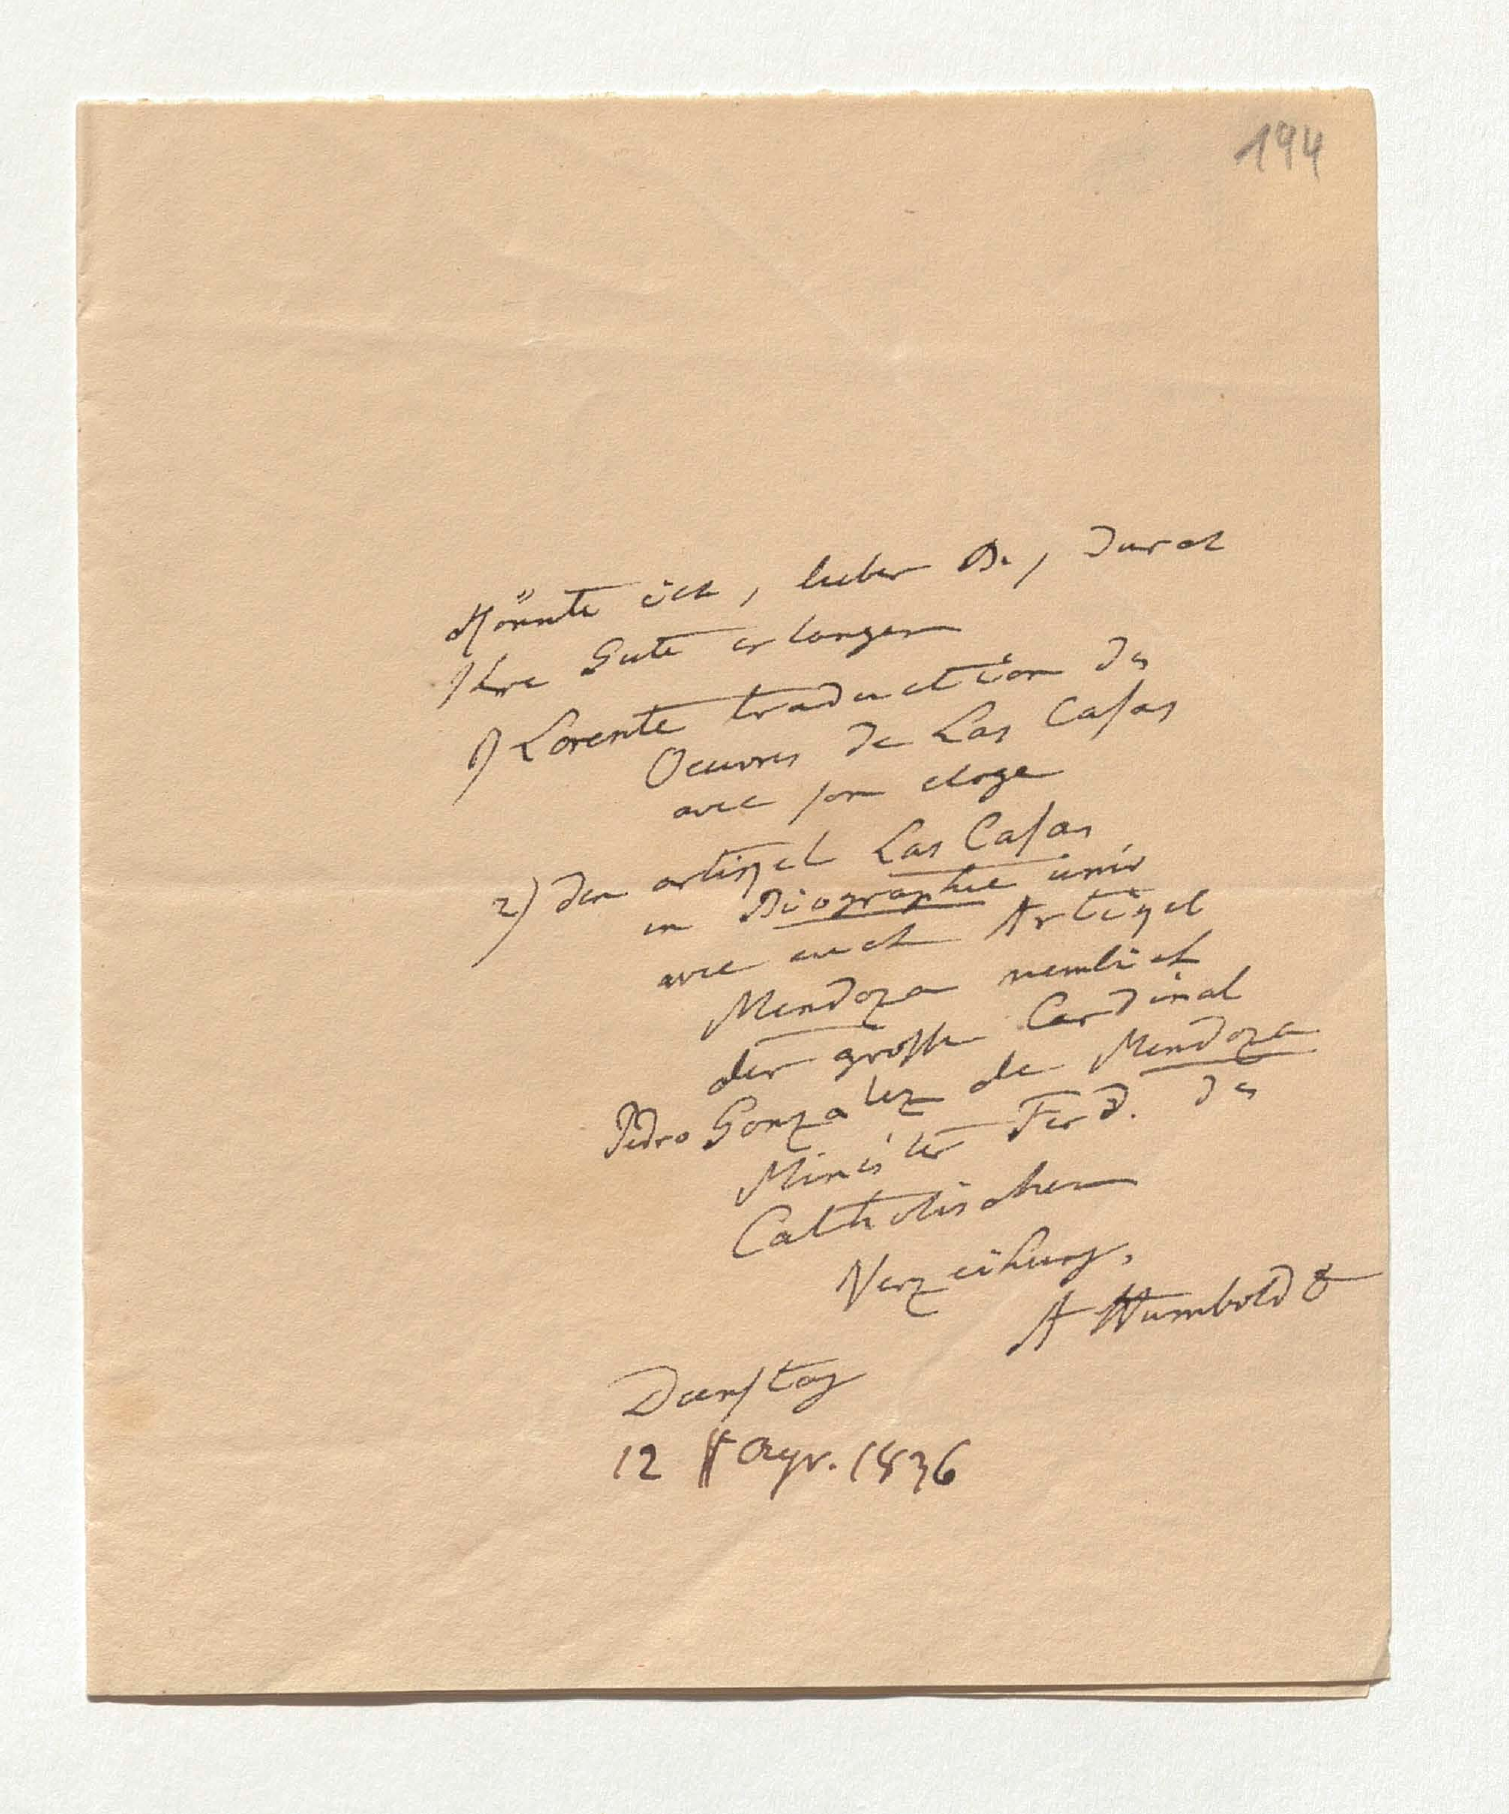 194
Könnte ich, lieber Dr, durch
Ihre Güte erlangen
1) Lorente traduction des
Oeuvres de Las Casas
avec son eloge
2) den artigel Las Casas
in Biographie univ
wie auch Artigel
Mendoza nemlich
der grosse Cardinal
Pedro Gonzalez de Mendoza
Minister Ferd. des
Catholischen
Verzeihung,
A Humboldt
Dienstag
12 Apr. 1836